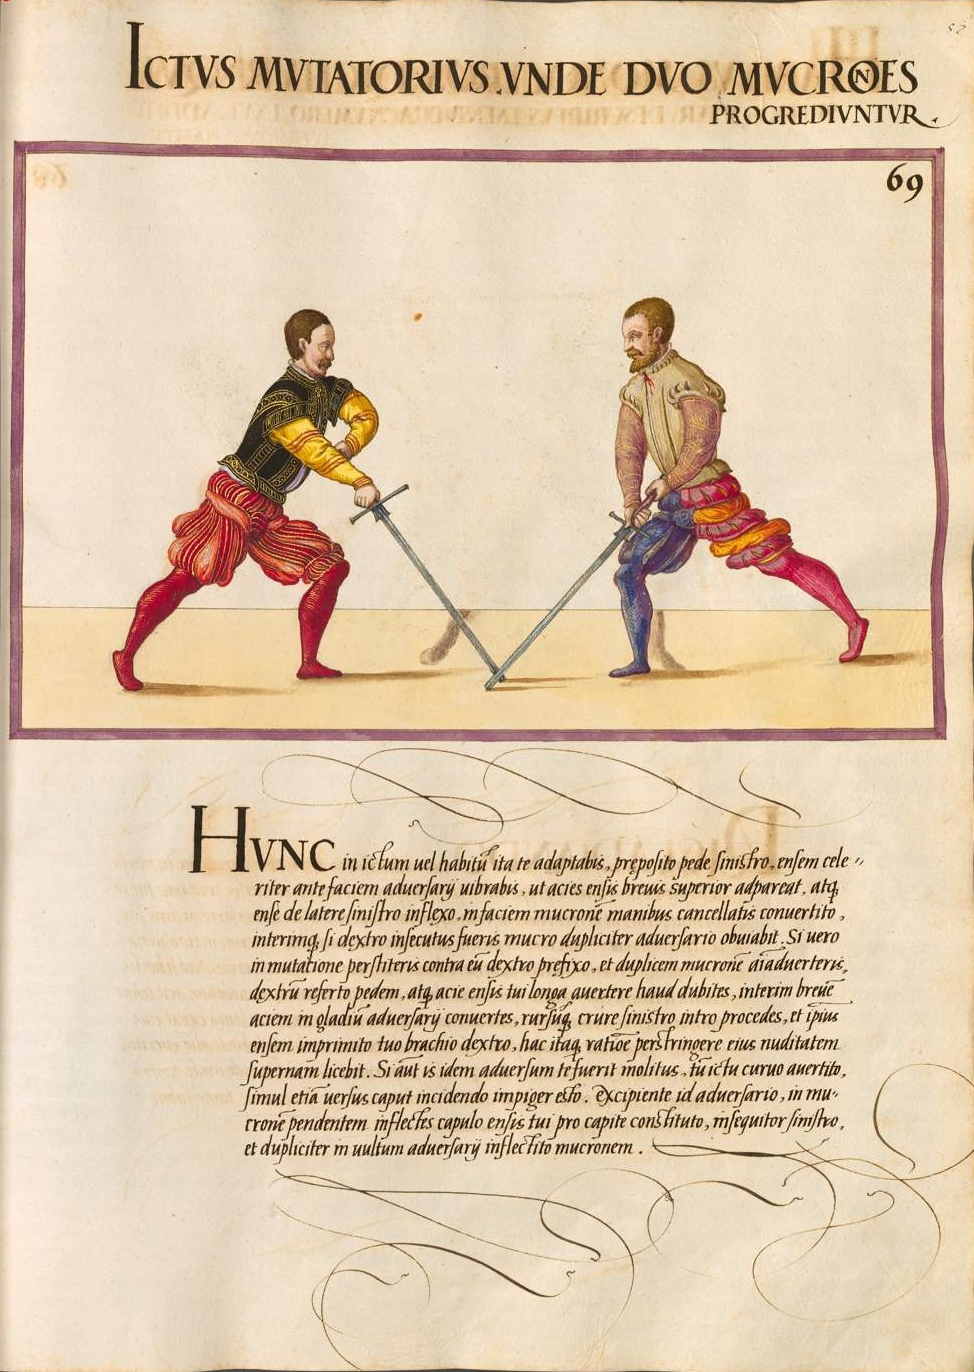 ICTVS MVTATORIVS VNDE DVO MVCRONES
PROGREDIVNTVR.
69
HVNC in ictum uel habitū ita te adaptabis, pręposito pede sinistro, ensem cele〃
riter ante faciem aduersarij uibrabis, ut acies ensis breuis superior adpareat, atq;
ense de latere sinistro inflexo, in faciem mucronē manibus cancellatis conuertito,
interimq; si dextro insecutus fueris mucro dupliciter aduersario obuiabit. Si uero
in mutatione perstiteris contra eū dextro prefixo, et duplicem mucronē aīaduerteris,
dextrū referto pedem, atq; acie ensis tui longa auertere haud dubites, interim breuē
aciem in gladiū aduersarij conuertes, rursūq; crure sinistro intro procedes, et ipsius
ensem imprimito tuo brachio dextro, hac itaq; ratiōe perstringere eius nuditatem
supernam licebit. Si aūt is idem aduersum te fuerit molitus, tū ictu curuo auertito,
simul etiā uersus caput incidendo impiger esto. Excipiente id aduersario, in mu〃
cronē pendentem inflectes capulo ensis tui pro capite constituto, insequitor sinistro,
et dupliciter in uultum aduersarij inflectito mucronem.